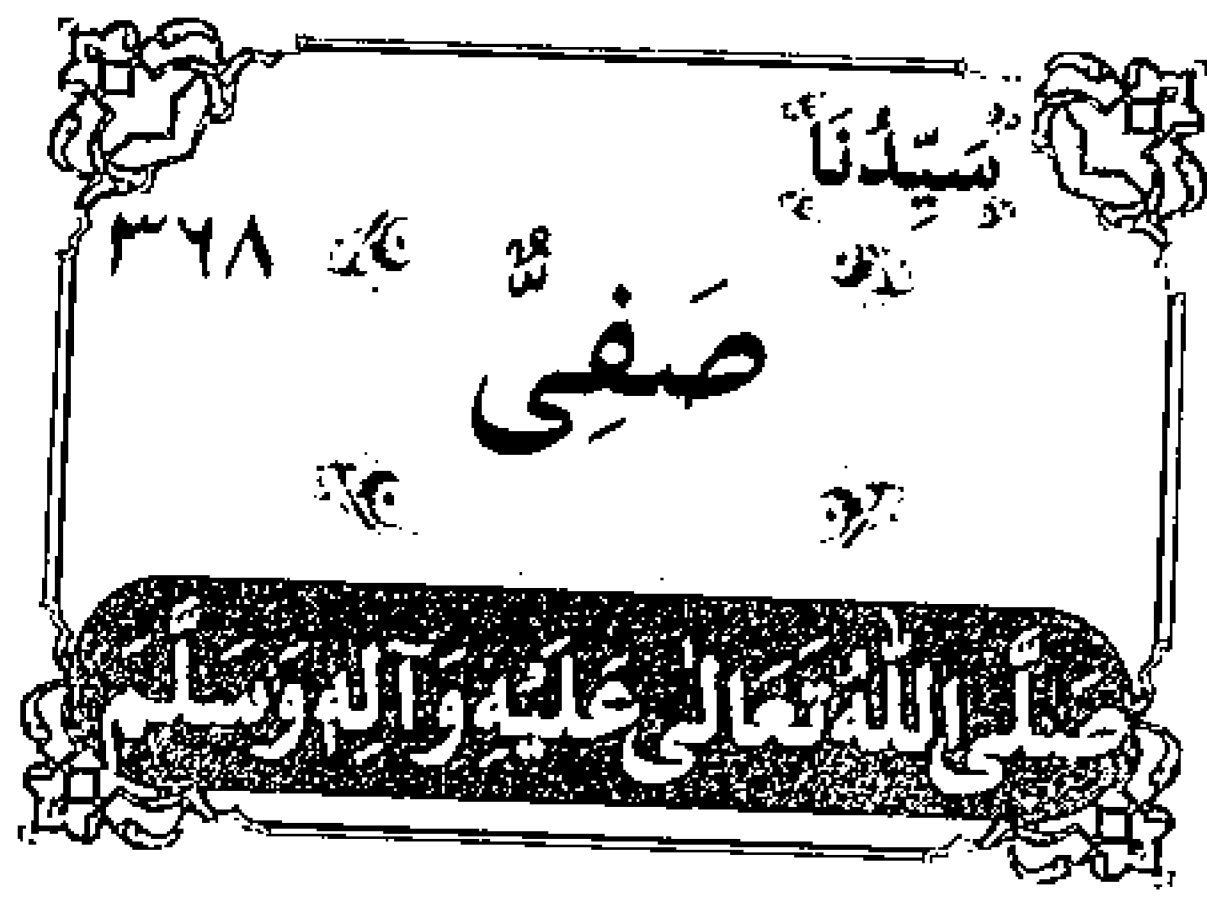 سَيِّدُنَا
٣٦٨
صَفِىٌّ
صَلَّى اللّٰهُ تَعَالٰى عَلَيْهِ وَآلِهٖ وَسَلَّمَ